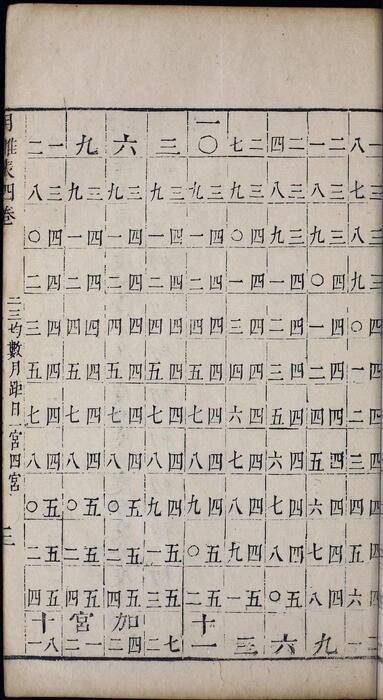 一八 二一 二四 二七 一〇 三 六 九 一二
三七 三八 三八 三九 三九 三九 三九 三九 三八
三八 三九 三九 四〇 四一 四一 四一 四一 四〇
三九 四〇 四一 四一 四二 四二 四二 四二 四二
四〇 四一 四二 四三 四四 四四 四四 四四 四三
四一 四二 四三 四四 四五 四五 四五 四五 四五
四二 四四 四五 四六 四七 四七 四七 四七 四七
四三 四五 四六 四七 四八 四八 四八 四八 四八
四四 四六 四七 四八 四九 四九 五〇 五〇 五〇
四五 四七 四八 四九 五〇 五一 五二 五二 五二
四六 四八 五〇 五一 五二 五三 五四 五四 五四
十 加宮十
一二 九 六 三 一 二七 二四 二一 八一
月離表四卷
二三均數月距日一宮四宮
三